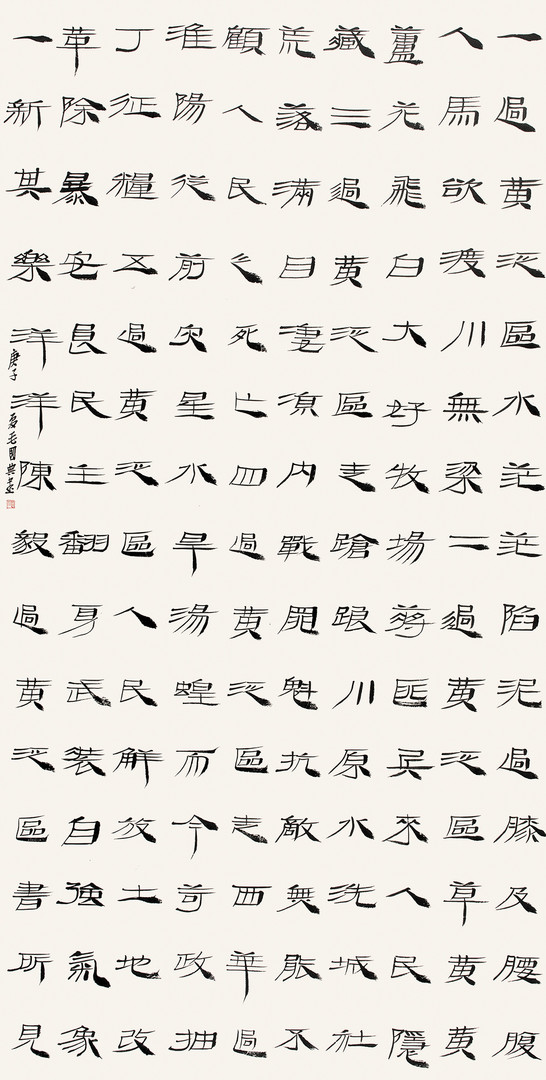 一過黃泛區水茫茫陷泥過膝及腰腹
人馬欲渡川無梁二過黃泛區草黃黃
蘆花飛白大好牧場蔣匪兵來人民隱
藏三過黃泛區走蹌踉川原水洗城社
荒落滿目淒涼內戰罪魁抗敵無能不
顧人民之死亡四過黃泛區走西華過
淮陽從前灾星水旱湯蝗而今苛政抽
丁征糧五過黃泛區人民解放土地改
革除暴安良民主翻身武裝自強氣象
一新其樂洋洋陳毅過黃泛區書所見
庚子夏毛國典書